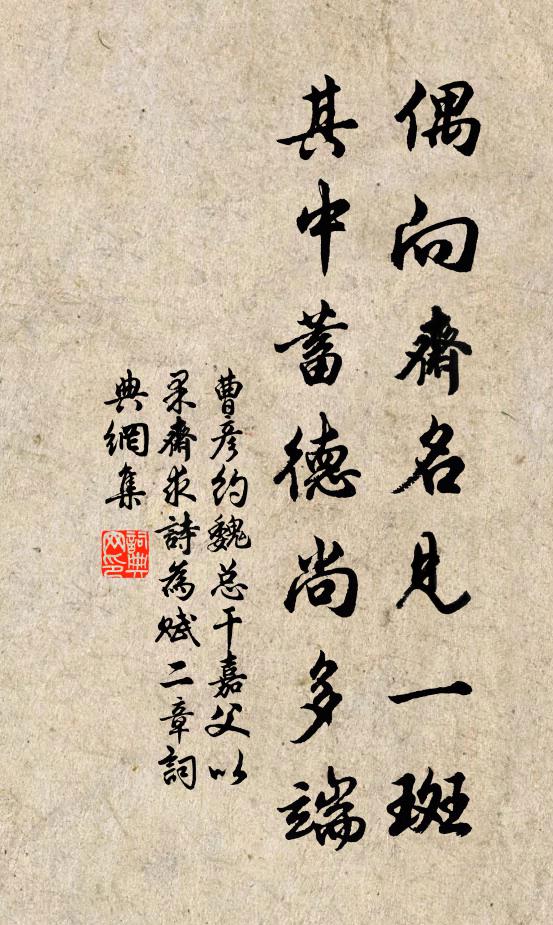 偶向齋名見一斑
其中蓄德尚多端
曹彥約魏总干嘉父以
果齋求詩為賦二章詞
典網集
詞典网印